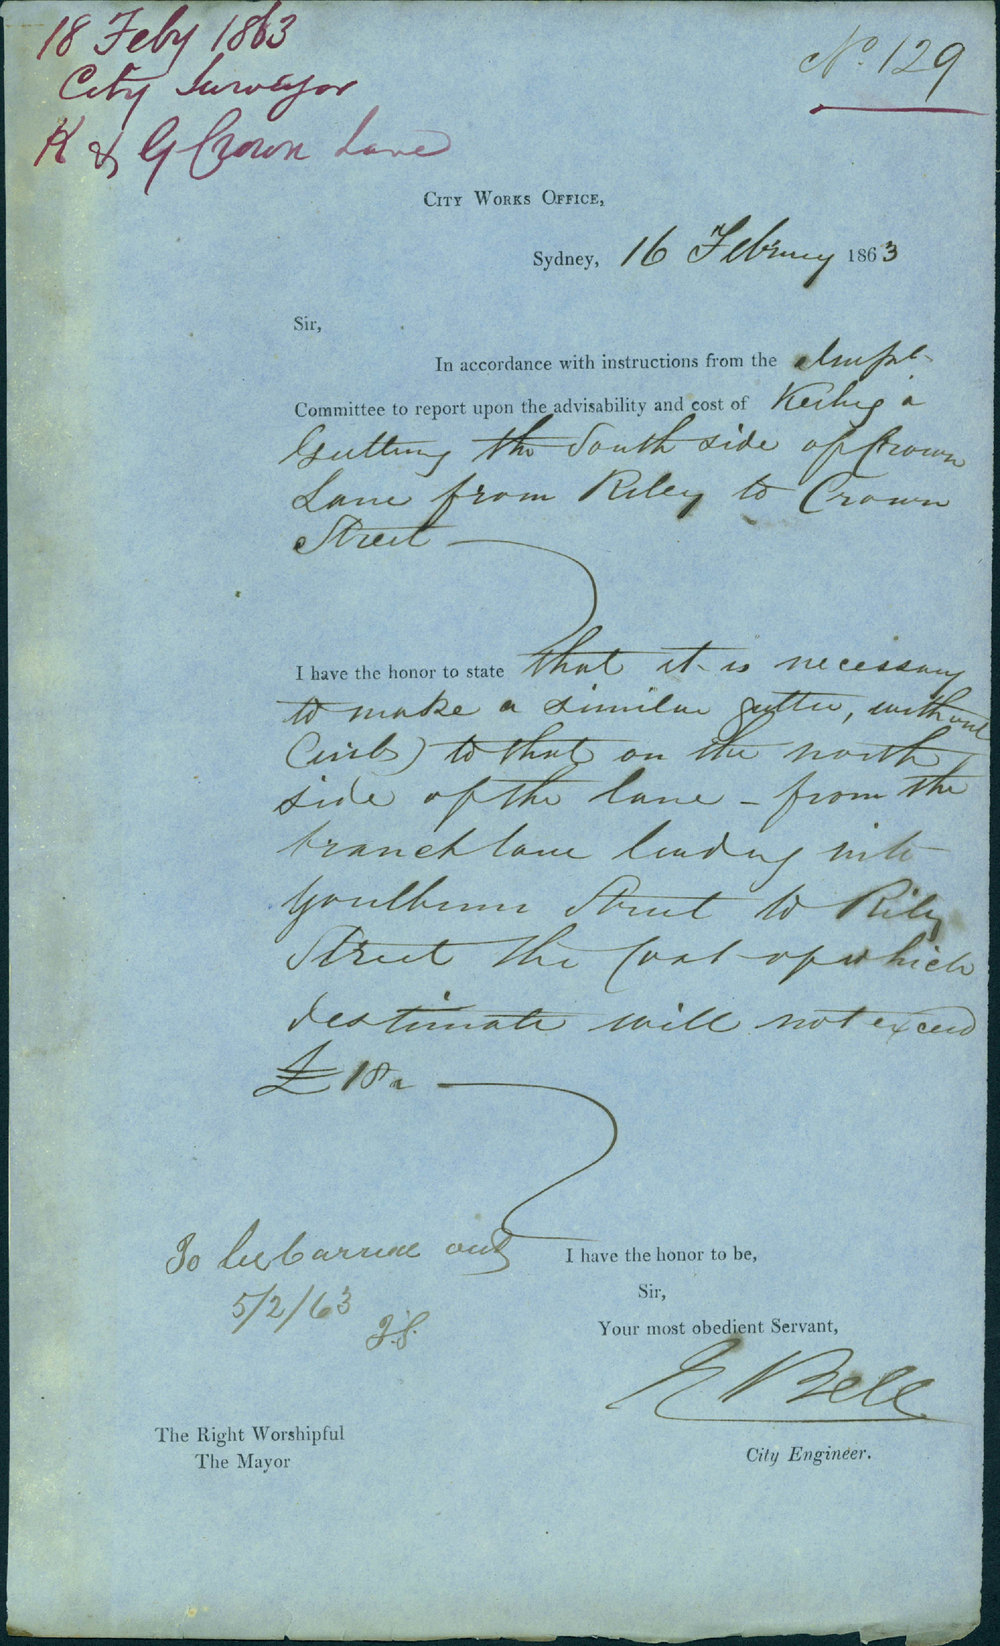 18 Feby 1863
City Surveyor
K & G Crown Lane
No. 129
City Works Office,
Sydney, 16 February 1863
Sir,
In accordance with instructions from the
Committee to report upon the advisability and cost of Kerbing &
Guttering the South side of Crown
Lane from Riley to Crown
Street
I have the honor to state that it is necessary
to make a similar gutter, without
Curb) to that on the north
side of the lane - from the
branch lane leading into
Goulburn Street to Riley
Street the Cost of which
I estimate will not exceed
£18
To be carried out
5/2/63
I have the honor to be,
Sir,
Your most obedient Servant,
E Bell
City Engineer.
The Right Worshipful
The Mayor